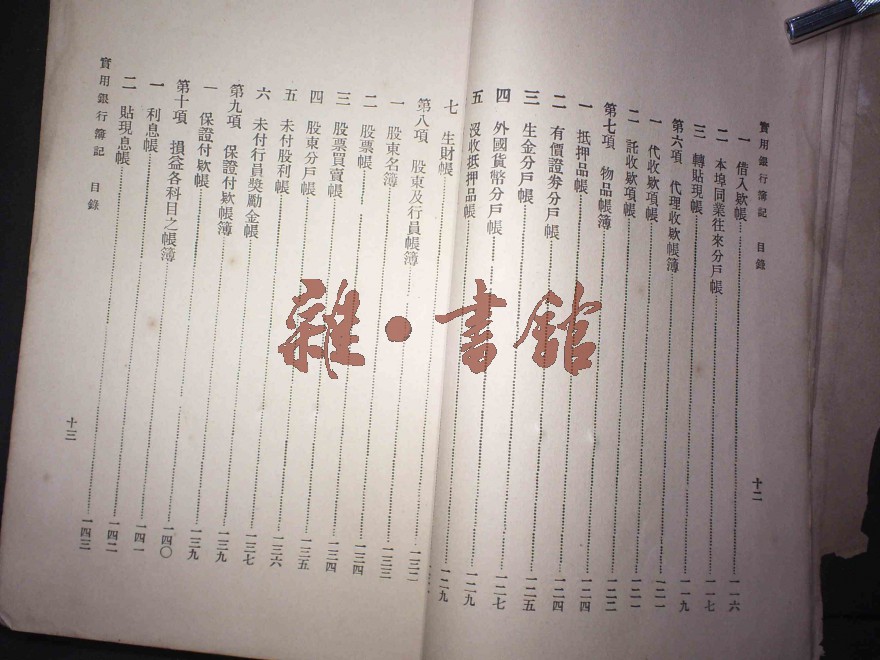 實用銀行簿記 目錄
一 借入欵帳 一一六
二 本埠同業往來分戶帳 一一七
三 轉貼現帳 一一九
第六項 代理收欵帳簿 一二一
一 代收欵項帳 一二一
二 託收欵項帳 一二二
第七項 物品帳簿 一二四
一 抵押品帳 一二四
二 有價證券分戶帳 一二五
三 生金分戶帳 一二七
四 外國貨幣分戶帳 一二九
五 沒收抵押品帳 一二九
十二
七 生財帳 一三二
第八項 股東及行員帳簿 一三三
一 股東名簿 一三四
二 股票帳 一三四
三 股票買賣帳 一三五
四 股東分戶帳 一三六
五 未付股利帳 一三七
六 未付行員獎勵金帳 一三九
第九項 保證付欵帳簿 一三九
一 保證付欵帳 一四〇
第十項 損益各科目之帳簿 一四一
一 利息帳 一四二
二 貼現息帳 一四三
實用銀行簿記 目錄
十三
雜·書館